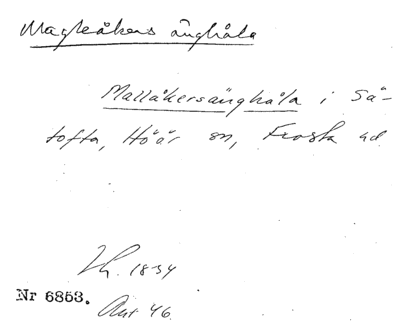 Magleåkers änghåla
Mallåkersänghåla i Sä-
tofta, Höör sn, Frosta hd
Lh. 1834
Nr 6853.
Avt 46